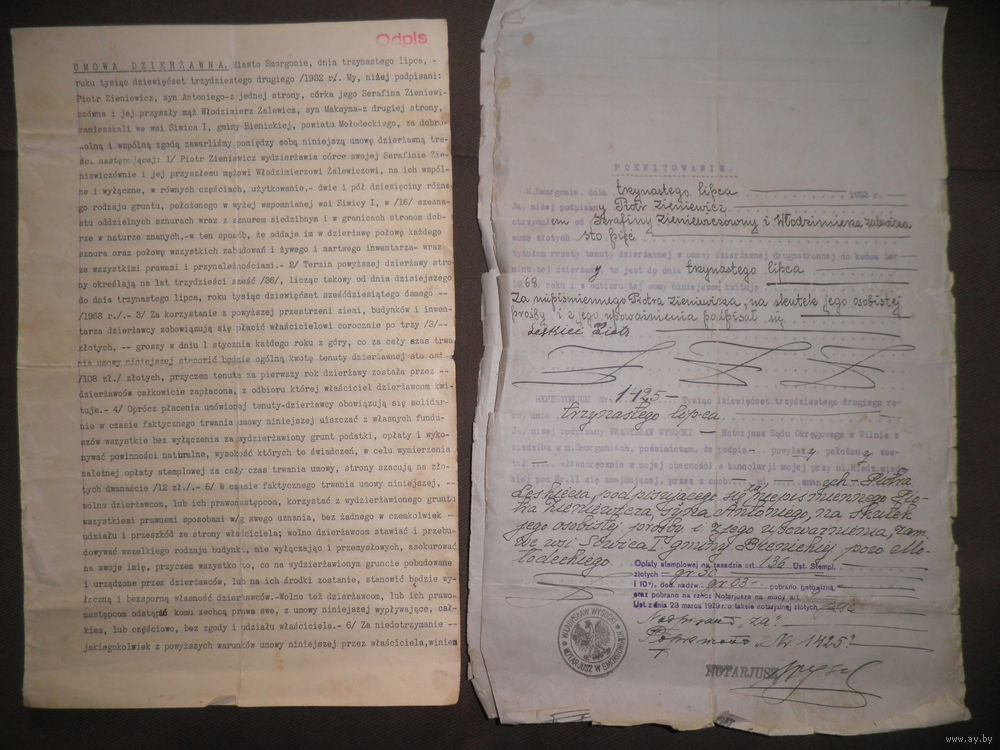 Odpis
UMOWA DZIERŻAWNA. Miasto Smorgonie, dnia trzynastego lipca, -
roku tysiąc dziewięćset trzydziestego drugiego /1932 r/. My, niżej podpisani:
Piotr Zieniewicz, syn Antoniego-z jednej strony, córka jego Serafina Zieniewi-
czówna i jej przyszły mąż Włodzimierz Zalewicz, syn Maksyma-z drugiej strony,
zamieszkali we wsi Siwica I, gminy Bienickiej, powiatu Mołodeckiego, za dobro-
wolną i wspólną zgodą zawarliśmy pomiędzy sobą niniejszą umowę dzierżawną tre-
ści następującej: 1/ Piotr Zieniewicz wydzierżawia córce swojej Serafinie Zie-
niewiczównie i jej przyszłemu mężowi Włodzimierzowi Zalewiczowi, na ich wspól-
ne i wyłączne, w równych częściach, użytkowanie,- dwie i pół dziesięciny różne-
go rodzaju gruntu, położonego w wyżej wspomnianej wsi Siwicy I, w /16/ szesna-
stu oddzielnych sznurach wraz z sznurem siedzibnym i w granicach stronom dob-
rze w naturze znanych,-w ten sposób, że oddaje im w dzierżawę połowę każdego
sznura oraz połowę wszystkich zabudowań i żywego i martwego inwentarza- wraz
ze wszystkimi prawami i przynależnościami.- 2/ Termin powyższej dzierżawy stro-
ny określają na lat trzydzieści sześć /36/, licząc takowy od dnia dzisiejszego
do dnia trzynastego lipca, roku tysiąc dziewięćset sześćdziesiątego ósmego --
/1968 r./.- 3/ Za korzystanie z powyższej przestrzeni ziemi, budynków i inwen-
tarza dzierżawcy zobowiązują się płacić właścicielowi corocznie po trzy /3/--
złotych, -- groszy w dniu 1 stycznia każdego roku z góry, co za cały czas trwa-
nia umowy niniejszej stanowić będzie ogólną kwotę tenuty dzierżawnej sto osm
/108 zł./ złotych, przyczem tenuta za pierwszy rok dzierżawy została przez --
dzierżawców całkowicie zapłacona, z odbioru której właściciel dzierżawcom kwi-
tuje.- 4/ Oprócz płacenia umówionej tenuty-dzierżawcy obowiązują się solidar-
nie w czasie faktycznego trwania umowy niniejszej uiszczać z własnych fundu-
szów wszystkie bez wyłączenia za wydzierżawiony grunt podatki, opłaty i wyko-
nywać powinności naturalne, wysokość których to świadczeń, w celu wymierzenia
należnej opłaty stemplowej za cały czas trwania umowy, strony szacują na zło-
tych dwanaście /12 zł./.- 5/ W czasie faktycznego trwania umowy niniejszej,--
wolno dzierżawcom, lub ich prawonastępcom, korzystać z wydzierżawionego gruntu
wszystkiemi prawnemi sposobami w/g swego uznania, bez żadnego w czemkolwiek --
udziału i przeszkód ze strony właściciela; wolno dzierżawcom stawiać i przebu-
dowywać wszelkiego rodzaju budynki, nie wyłączając i przemysłowych, asekurować
na swoje imię, przyczem wszystko to, co na wydzierżawionym gruncie pobudowane
i urządzone przez dzierżawców, lub na ich środki zostanie, stanowić będzie wy-
łączną i bezsporną własność dzierżawców.-Wolno też dzierżawcom, lub ich prawo-
następcom odstąpić komu zechcą prawa swe, z umowy niniejszej wypływające, cał-
kiem, lub częściowo, bez zgody i udziału właściciela.- 6/ Za niedotrzymanie --
jakiegokolwiek z powyższych warunków umowy niniejszej przez właściciela, winien
POKWITOWANIE.
M.Smorgonie, dnia trzynastego lipca 1932 r.
Ja, niżej podpisany Piotr Zieniewicz
otrzymałem od Serafiny Zieniewiczówny i Włodzimierza Zalewicza
sumę złotych sto pięć
tytułem reszty tenuty dzierżawnej z umowy dzierżawnej do końca ter-
minu tej dzierżawy, to jest do dnia trzynastego lipca
1968 roku i z odbioru tej sumy niniejszem kwituję.
Za niepiśmiennego Piotra Zieniewicza, na skutek jego osobistej
prośby i z jego upoważnienia podpisał się
Leskieć Piotr
REPERTORIUM Nr. 1425 - Tysiąc dziewięćset trzydziestego drugiego ro-
ku, dnia trzynastego lipca
Ja, niżej podpisany WŁADYSŁAW WYSOCKI - Notariusz Sądu Okręgowego w Wilnie z
siedzibą w m.Smorgoniach, poświadczam, że podpis powyższy został
własnoręcznie w mojej obecności w kancelarji mojej przy ul.
pod Nr.11 się znajdującej, przez Piotra
Leskiecia, podpisującego się za niepiśmiennego Pio-
tra Zieniewicza, syna Antoniego, na skutek
jego osobistej prośby i z jego upoważnienia, zam-
we wsi Siwica I gminy Bienickiej pow. Mo-
łodeckiego.
Opłaty stemplowej na zasadzie art. 136 Ust. Stempl.
złotych gr 30
i 10% dod. nadzw. gr 03 - pobrano gotowizną,
oraz pobrano na rzecz Notarjusza na mocy art.
Ust. z dnia 23 marca 1929 r. o taksie notarjalnej złotych
Nadpisano "za"
Nr. 1425
WŁADYSŁAW WYSOCKI
NOTARJUSZ W SMORGONIACH
NOTARJUSZ
www.ay.by